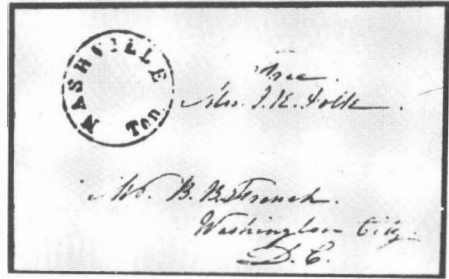 NASHVILLE
Ten.
Free.
Mrs. J. K. Polk.
Mr. B. B. French.
Washington City.
D. C.